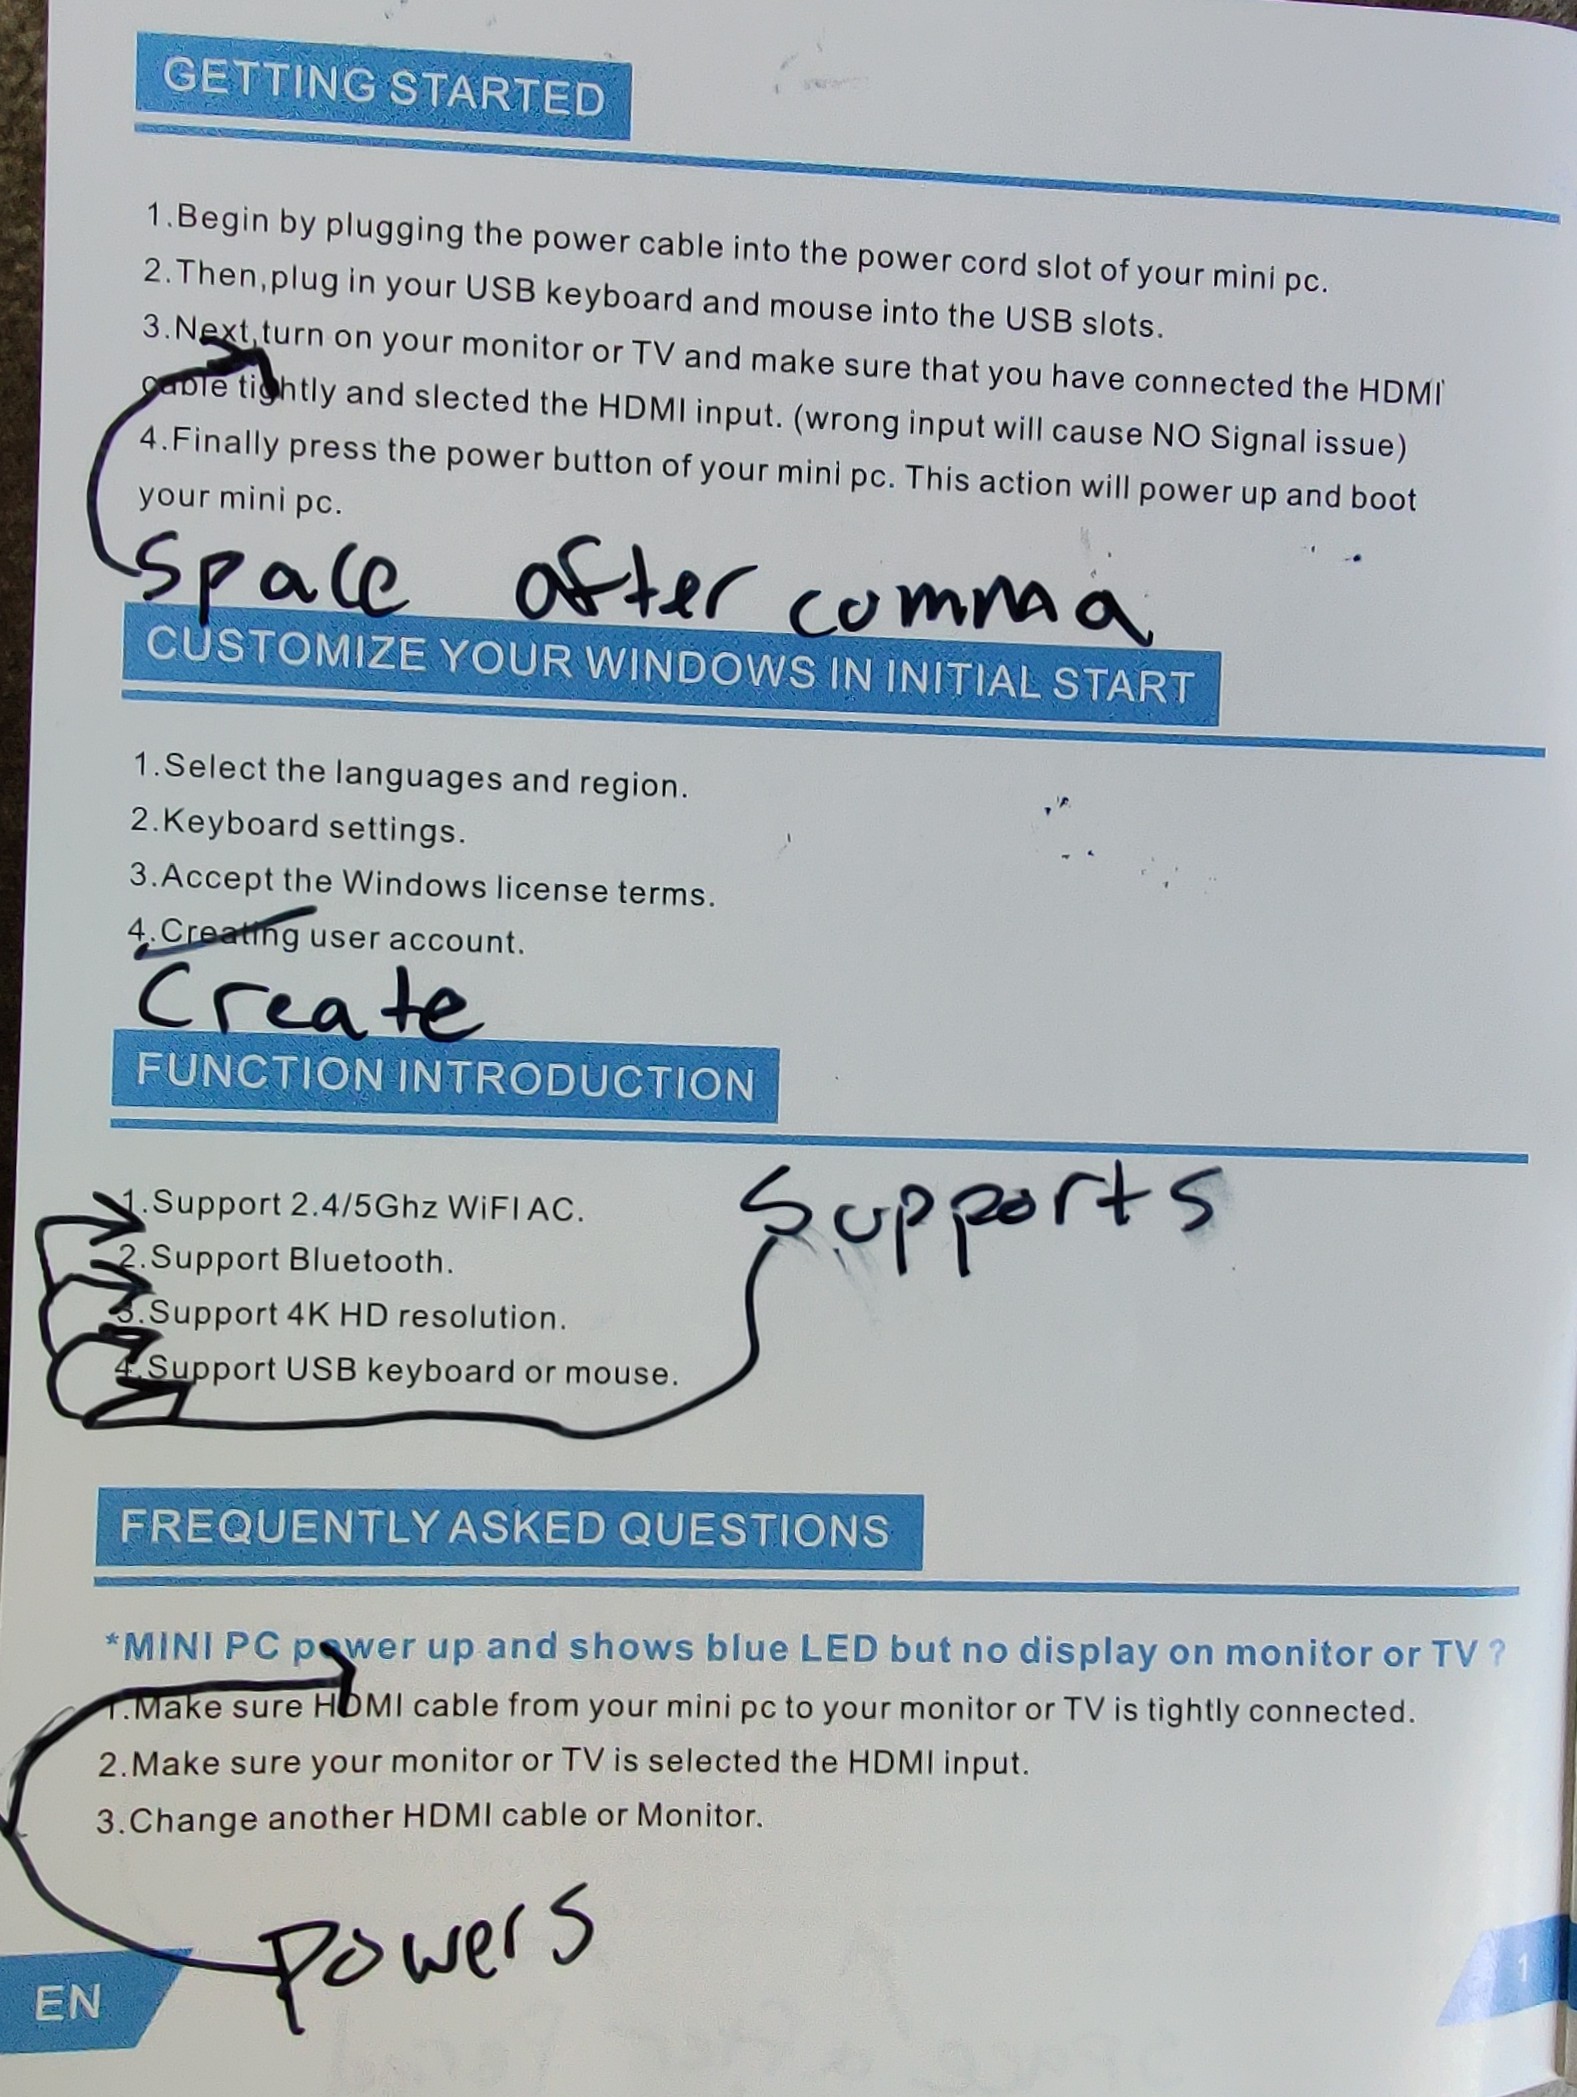 GETTING STARTED
1.Begin by plugging the power cable into the power cord slot of your mini pc.
2.Then,plug in your USB keyboard and mouse into the USB slots.
3.Next,turn on your monitor or TV and make sure that you have connected the HDMI
cable tightly and slected the HDMI input. (wrong input will cause NO Signal issue)
4.Finally press the power button of your mini pc. This action will power up and boot
your mini pc.
Space after comma
CUSTOMIZE YOUR WINDOWS IN INITIAL START
1.Select the languages and region.
2.Keyboard settings.
3.Accept the Windows license terms.
4.Creating user account.
Create
FUNCTION INTRODUCTION
Supports
1.Support 2.4/5Ghz WiFI AC.
2.Support Bluetooth.
3.Support 4K HD resolution.
4.Support USB keyboard or mouse.
FREQUENTLY ASKED QUESTIONS
*MINI PC power up and shows blue LED but no display on monitor or TV ?
1.Make sure HDMI cable from your mini pc to your monitor or TV is tightly connected.
2.Make sure your monitor or TV is selected the HDMI input.
3.Change another HDMI cable or Monitor.
Powers
EN
1